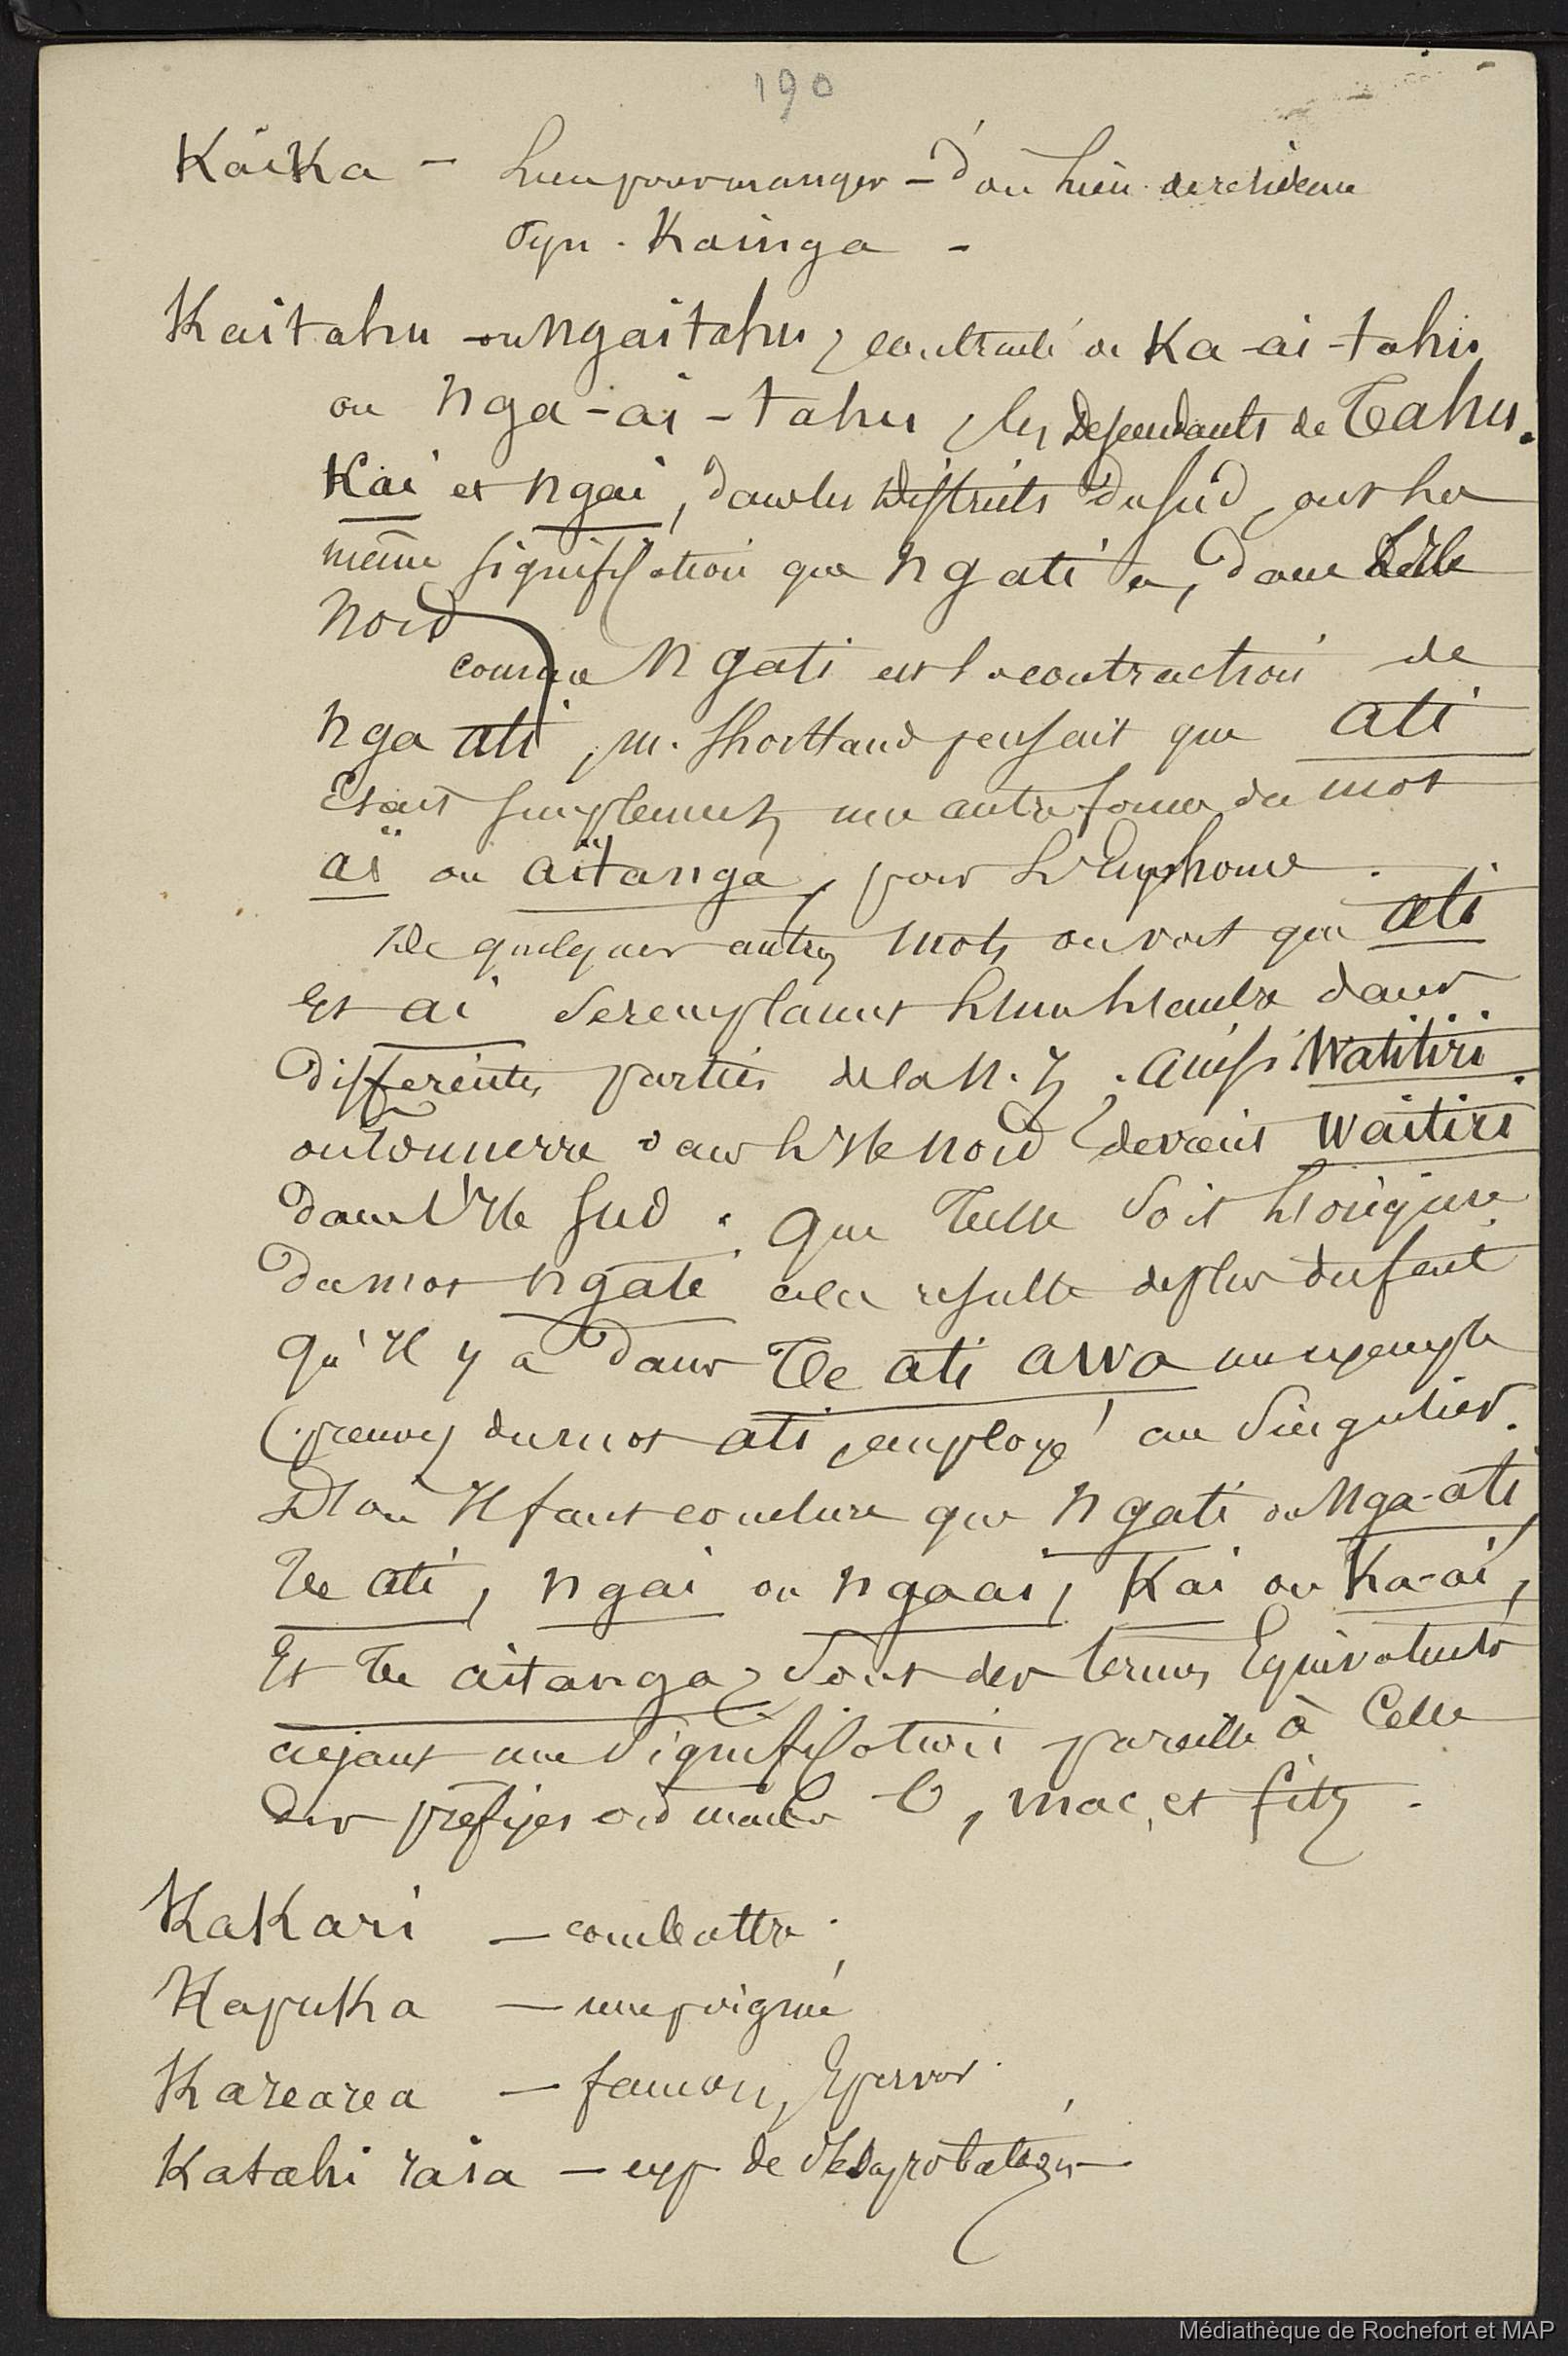 190
Kaika – Lieu pour manger – d'ou Lieu de residence
Syn. Kainga –
Kaitahu – ou Ngaitahu, contracté de Ka-ai-tahu
ou Nga-ai-tahu, les Descendants de Tahu.
Kai et ngai, dans les Districts du Sud, ont la
même signification que ngati a, dans L'Ile
Nord
comme Ngati est la contraction de
nga ati, M. Shortland pensait que ati
Etait simplement une autre forme du mot
aï ou aïtanga, pour L'Euphonie.
De quelques autres mots on voit que ati
Et ai se remplacent L'un L'autre dans
Differentes parties de la N. Z. Ainsi Watitiri.
ou tonnerre dans L'Ile Nord devient Waitiri
dans l'Ile Sud. Que telle soit L'origine
du mot ngati cela resulte de plus du fait
qu'Il y a dans Te ati awa un exemple
(preuve) du mot ati employé au Singulier.
D'ou Il faut conclure que ngati ou Nga-ati,
Te ati, ngai ou ngaai, Kai ou Ka-ai,
Et Te aitanga, sont des termes Equivalents
ayant une signification pareille à Celle
des prefixes O, Mac, et fitz.
Kakari – combattre.
Kapuka – une poignée
Karearea – faucon, Epervier.
Katahi raia – exp de Desaprobation –
Médiathèque de Rochefort et MAP